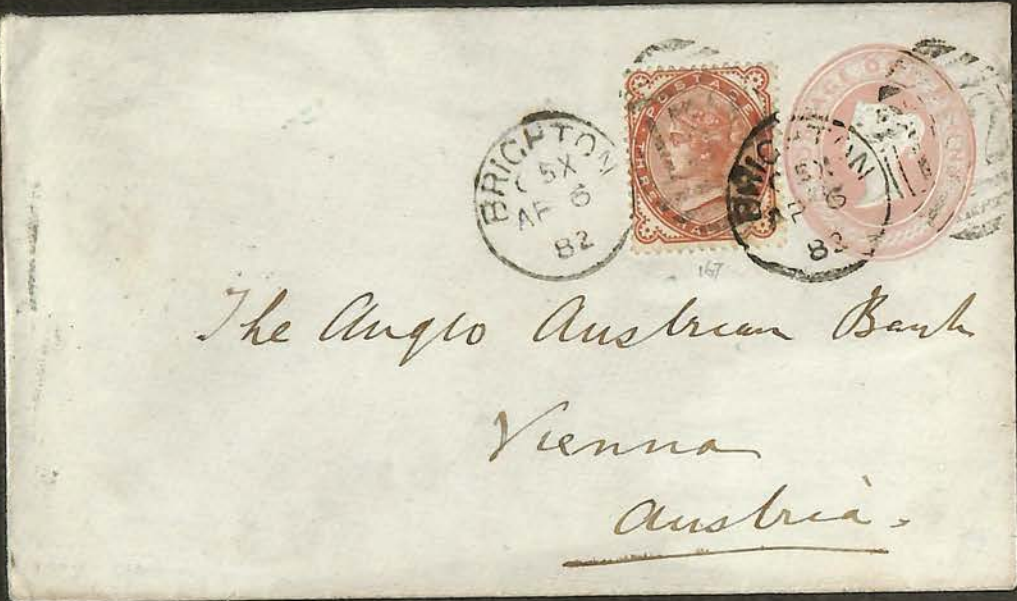 BRIGHTON
5X
AP 6
82
POSTAGE
BRIGHTON
5X
AP 6
82
167
The Anglo Austrian Bank
Vienna
Austria.